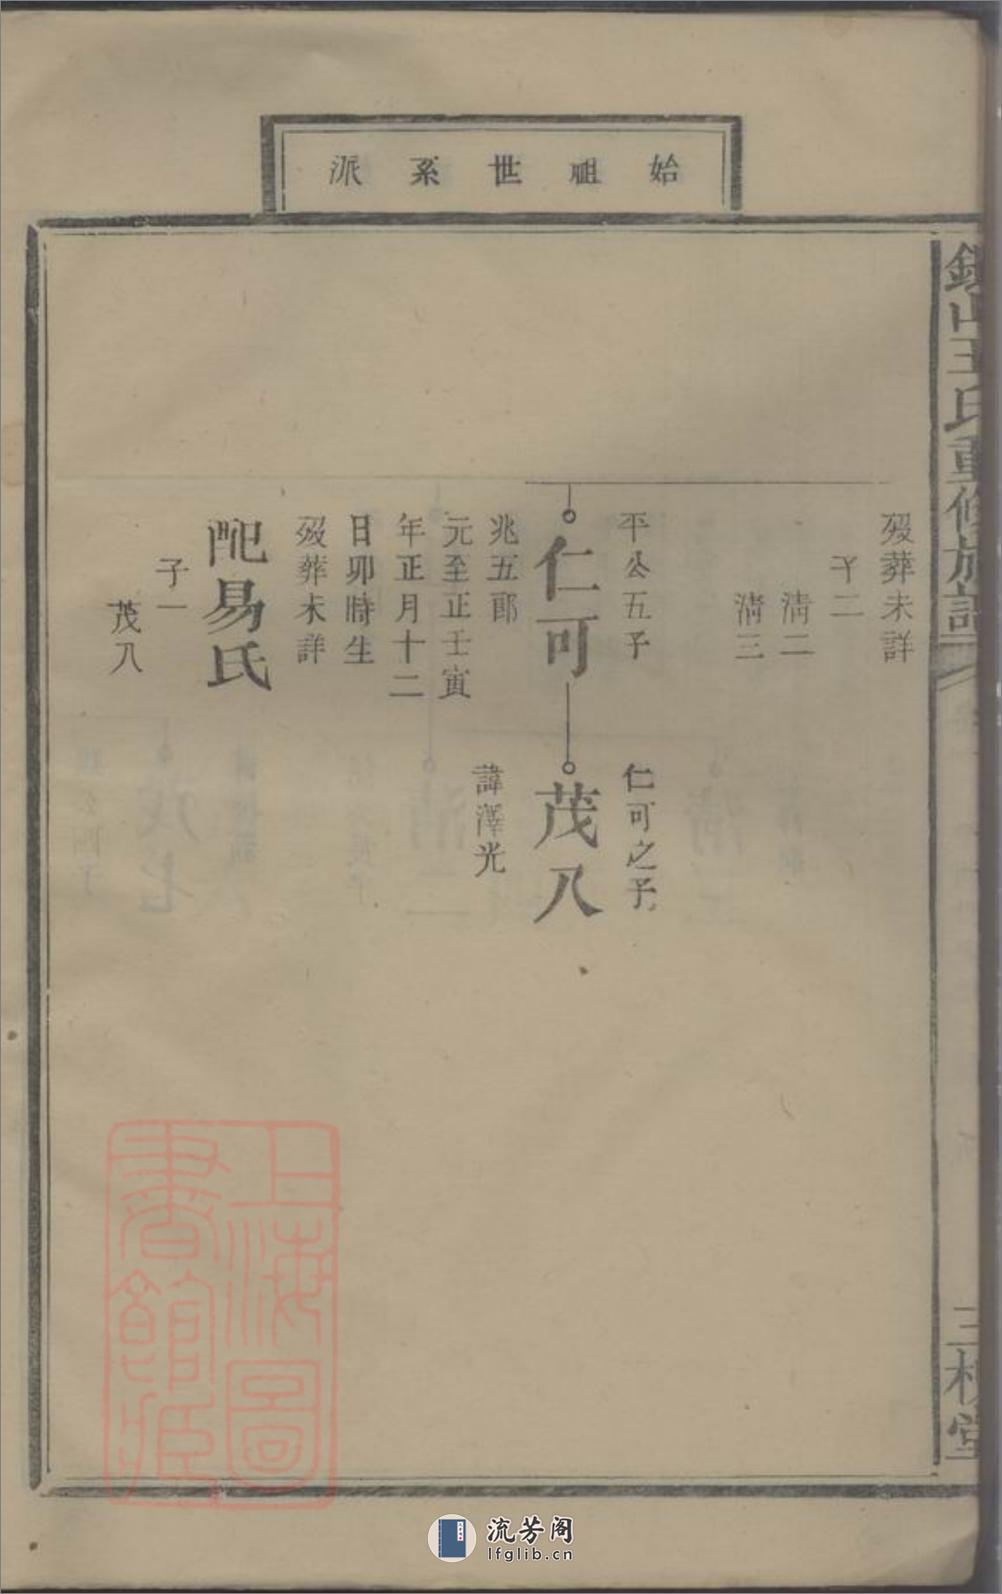 始祖世系派
歿葬未詳
子二
淸二
淸三
平公五子
仁可
兆五郎
元至正壬寅
年正月十二
日卯時生
歿葬未詳
配易氏
子一
茂八
仁可之子
茂八
諱澤光
山王氏重修族譜
三槐堂
上海圖
書館藏
流芳阁
lfglib.cn